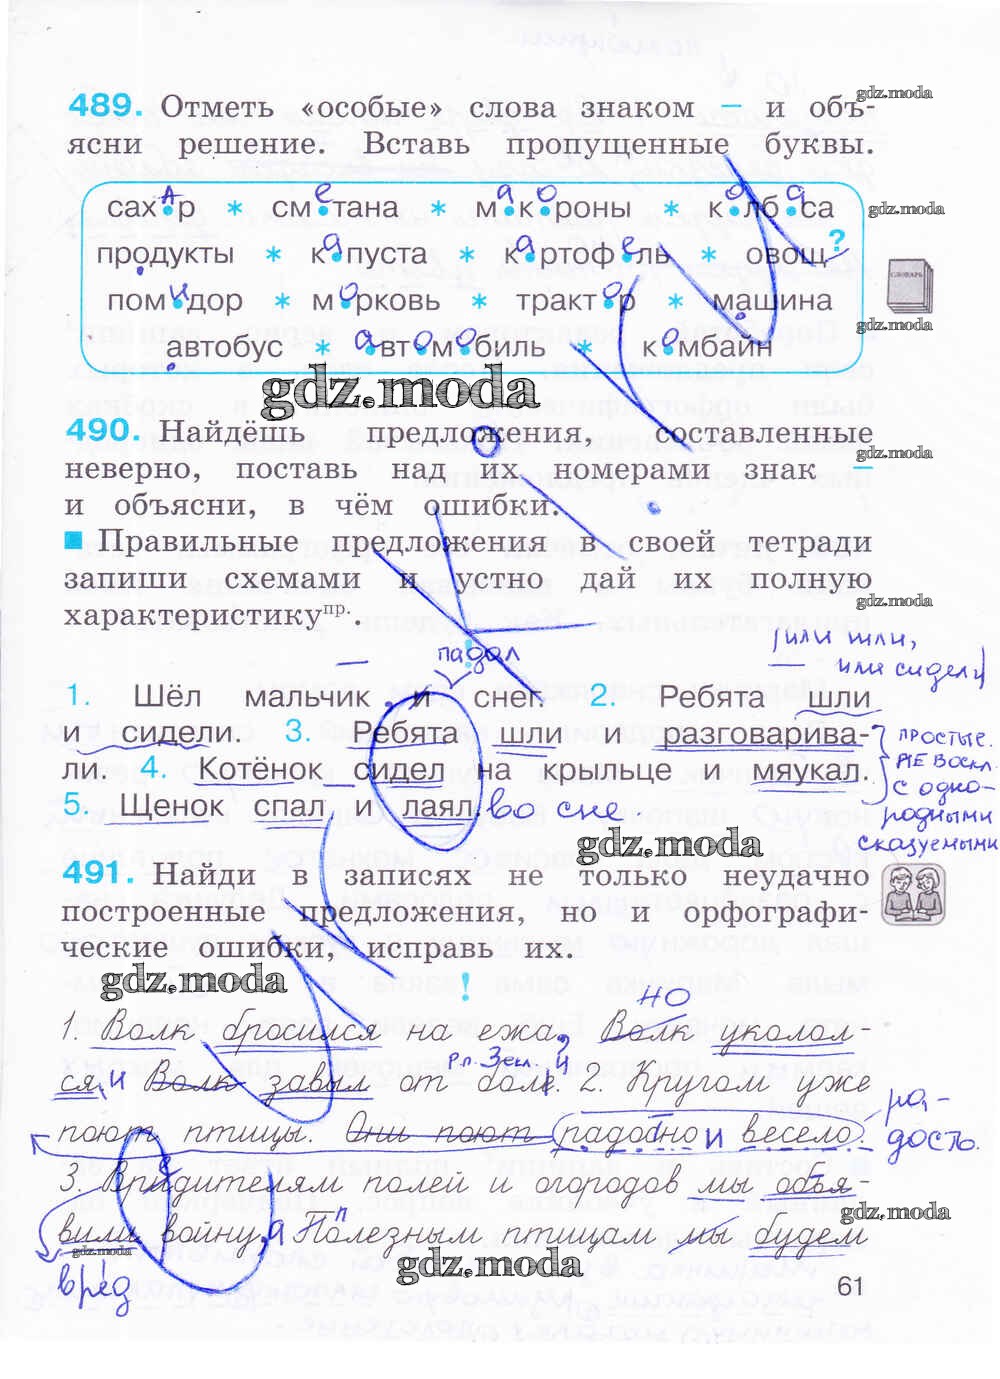 489. Отметь «особые» слова знаком – и объ-
ясни решение. Вставь пропущенные буквы.
gdz.moda
сахар * сметана * макароны * колбаса
gdz.moda
продукты * капуста * картофель * овощ ?
помидор * морковь * трактор * машина
СЛОВАРЬ
gdz.moda
автобус * автомобиль * комбайн
gdz.moda
490. Найдёшь предложения, составленные
gdz.moda
неверно, поставь над их номерами знак –
и объясни, в чём ошибки.
Правильные предложения в своей тетради
запиши схемами и устно дай их полную
gdz.moda
характеристику пр..
(или шли,
или сидели)
падал
1. Шёл мальчик, и снег. 2. Ребята шли
и сидели. 3. Ребята шли и разговарива-
ли. 4. Котёнок сидел на крыльце и мяукал.
5. Щенок спал и лаял во сне
простые.
невоскл.
с одно-
родными
сказуемыми
gdz.moda
491. Найди в записях не только неудачно
построенные предложения, но и орфографи-
ческие ошибки, исправь их.
gdz.moda
!
но
1. Волк бросился на ежа, Волк уколол-
Р.п. 3скл. и
ся, и Волк завыл от боле. 2. Кругом уже
поют птицы. Они поют радобно и весело.
ра-
дость.
е
3. Вридителям полей и огородов мы объя-
п
вили войну, а Полезным птицам мы будем
gdz.moda
gdz.moda
gdz.moda
вред
61